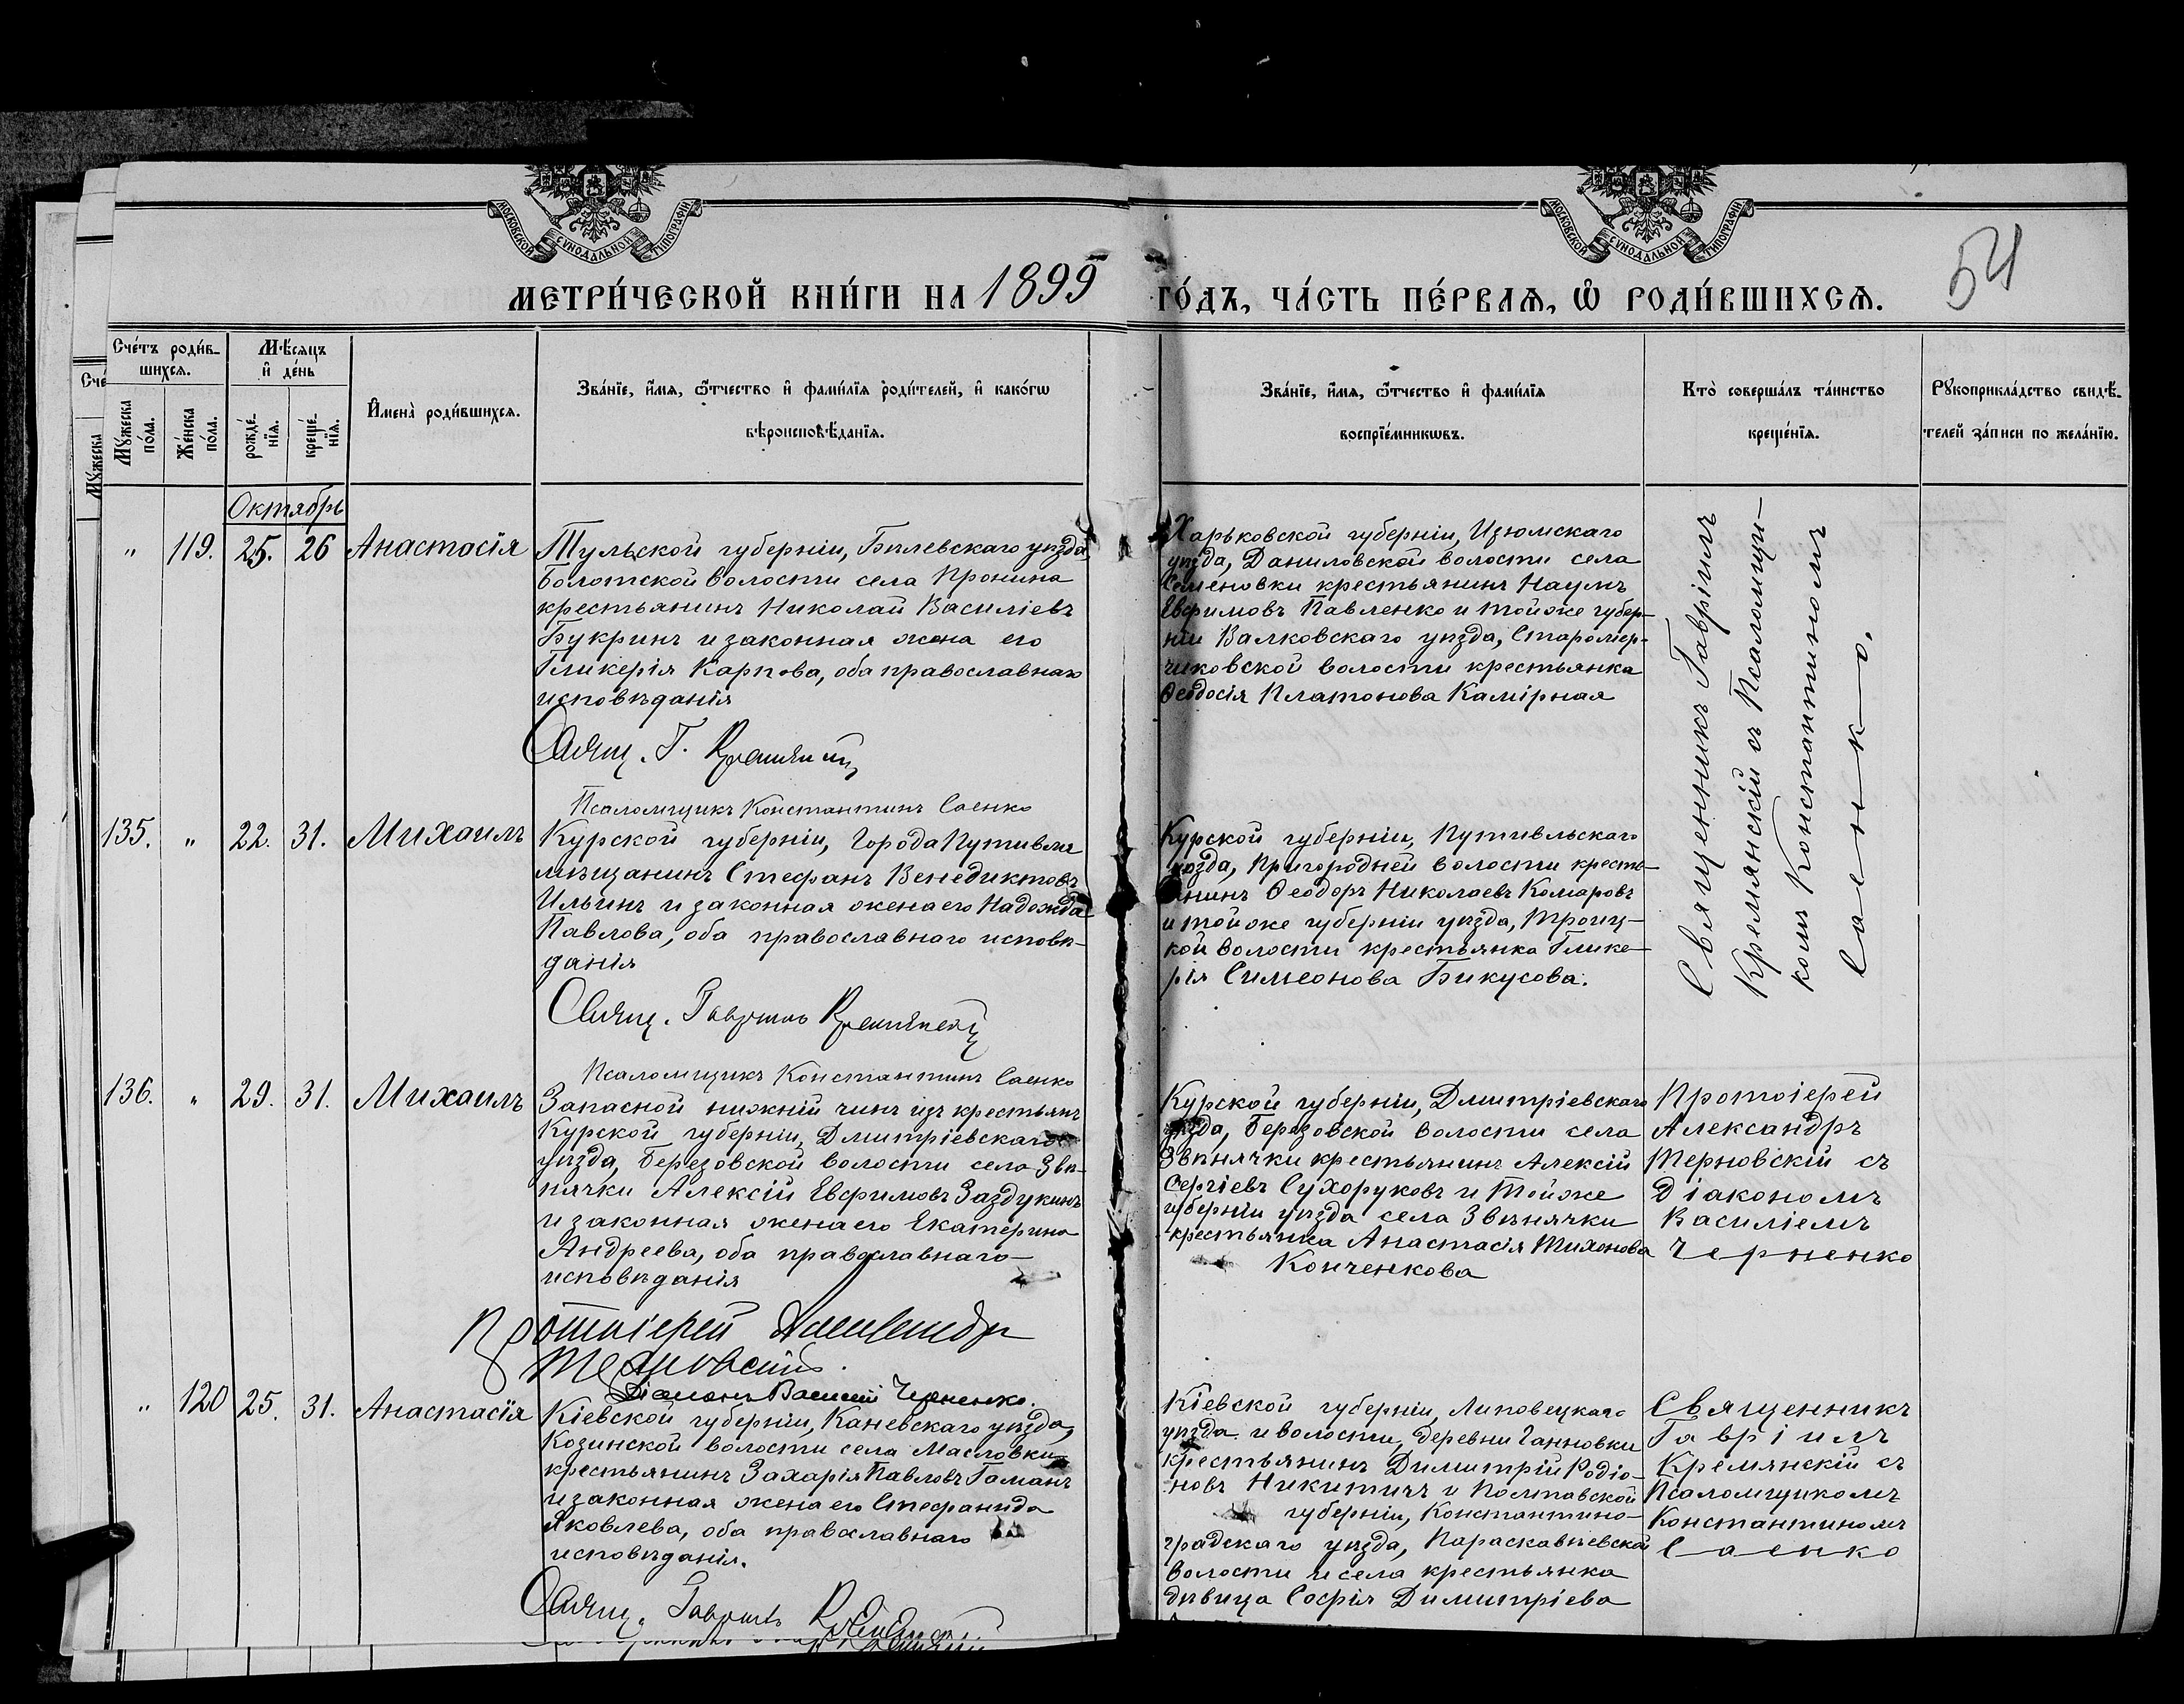 МОСКОВСКОЙ СУНОДАЛЬНОЙ ТИПОГРАФІИ
МОСКОВСКОЙ СУНОДАЛЬНОЙ ТИПОГРАФІИ
54
МЕТРИ́ЧЕСКОЙ КНИ́ГИ НА 1899 ГО́ДЪ, ЧА́СТЬ ПЕ́РВАѦ, Ѡ҆ РОДИ́ВШИХСѦ.
Сче́тъ роди́в-
шихсѧ.
Мꙋ́жеска
по́ла.
Же́нска
по́ла.
Мѣ́сѧцъ
и҆ де́нь
рожде́-
нїѧ.
креще́-
нїѧ.
И҆мена̀ роди́вшихсѧ.
Зва́нїе, и҆́мѧ, ѻ҆́тчество и҆ фами́лїѧ роди́телей, и҆ како́гѡ
вѣроисповѣ́данїѧ.
Зва́нїе, и҆́мѧ, ѻ҆́тчество и҆ фами́лїѧ
воспрїе́мникѡвъ.
Кто̀ соверша́лъ та́инство
креще́нїѧ.
Рꙋкоприкла́дство свидѣ́-
телей за́писи по жела́нїю.
Сче́
Мꙋ́жеска
Октябрь
„ 119. 25. 26 Анастасія
Тульской губерніи, Бѣлевскаго уѣзда,
Болотской волости села Пронина
крестьянинъ Николай Василіевъ
Букринъ и законная жена его
Гликерія Карпова, оба православнаго
исповѣданія
Свящ. Г. Кремянскій
Псаломщикъ Константинъ Саенко
Харьковской губерніи, Изюмскаго
уѣзда, Даниловской волости села
Семеновки крестьянинъ Наумъ
Евфимовъ Павленко и тойже губер-
ніи Валковскаго уѣзда, Старомер-
чиковской волости крестьянка
Ѳеодосія Платонова Камірная
Священникъ Гавріилъ
Кремянскій съ Псаломщи-
комъ Константиномъ
Саенко.
135. „ 22. 31. Михаилъ
Курской губерніи, города Путивля
мѣщанинъ Стефанъ Венедиктовъ
Ильинъ и законная жена его Надежда
Павлова, оба православнаго исповѣ-
данія
Свящ. Гавріилъ Кремянскій
Псаломщикъ Константинъ Саенко
Курской губерніи, Путивльскаго
уѣзда, Пригородней волости кресть-
янинъ Ѳеодоръ Николаевъ Комаровъ
и тойже губерніи уѣзда, Троиц-
кой волости крестьянка Глике-
рія Симеонова Бикусова.
136. „ 29. 31. Михаилъ
Запасной нижній чинъ изъ крестьянъ
Курской губерніи, Дмитріевскаго
уѣзда, Березовской волости села Звѣ-
нячки Алексій Евфимовъ Заздукинъ
и законная жена его Екатерина
Андреева, оба православнаго
исповѣданія
Протоіерей Александръ
Терновскій.
Діаконъ Василій Черненко.
Курской губерніи, Дмитріевскаго
уѣзда, Березовской волости села
Звѣнячки крестьянинъ Алексій
Сергіевъ Сухоруковъ и тойже
губерніи уѣзда села Звѣнячки
крестьянка Анастасія Тихонова
Конченкова
Протоіерей
Александръ
Терновскій съ
Діакономъ
Василіемъ
Черненко
„ 120 25. 31. Анастасія
Кіевской губерніи, Каневскаго уѣзда,
Козинской волости села Масловки
крестьянинъ Захарія Павловъ Гоманъ
и законная жена его Стефанида
Яковлева, оба православнаго
исповѣданія.
Свящ. Гавріилъ Кремянскій
Кіевской губерніи, Липовецкаго
уѣзда и волости, деревни Ганновки
крестьянинъ Димитрій Родіо-
новъ Никитичъ и Полтавской
губерніи, Константино-
градскаго уѣзда, Параскавѣевской
волости и села крестьянка
дѣвица Софія Димитріева
Священникъ
Гавріилъ
Кремянскій съ
Псаломщикомъ
Константиномъ
Саенко